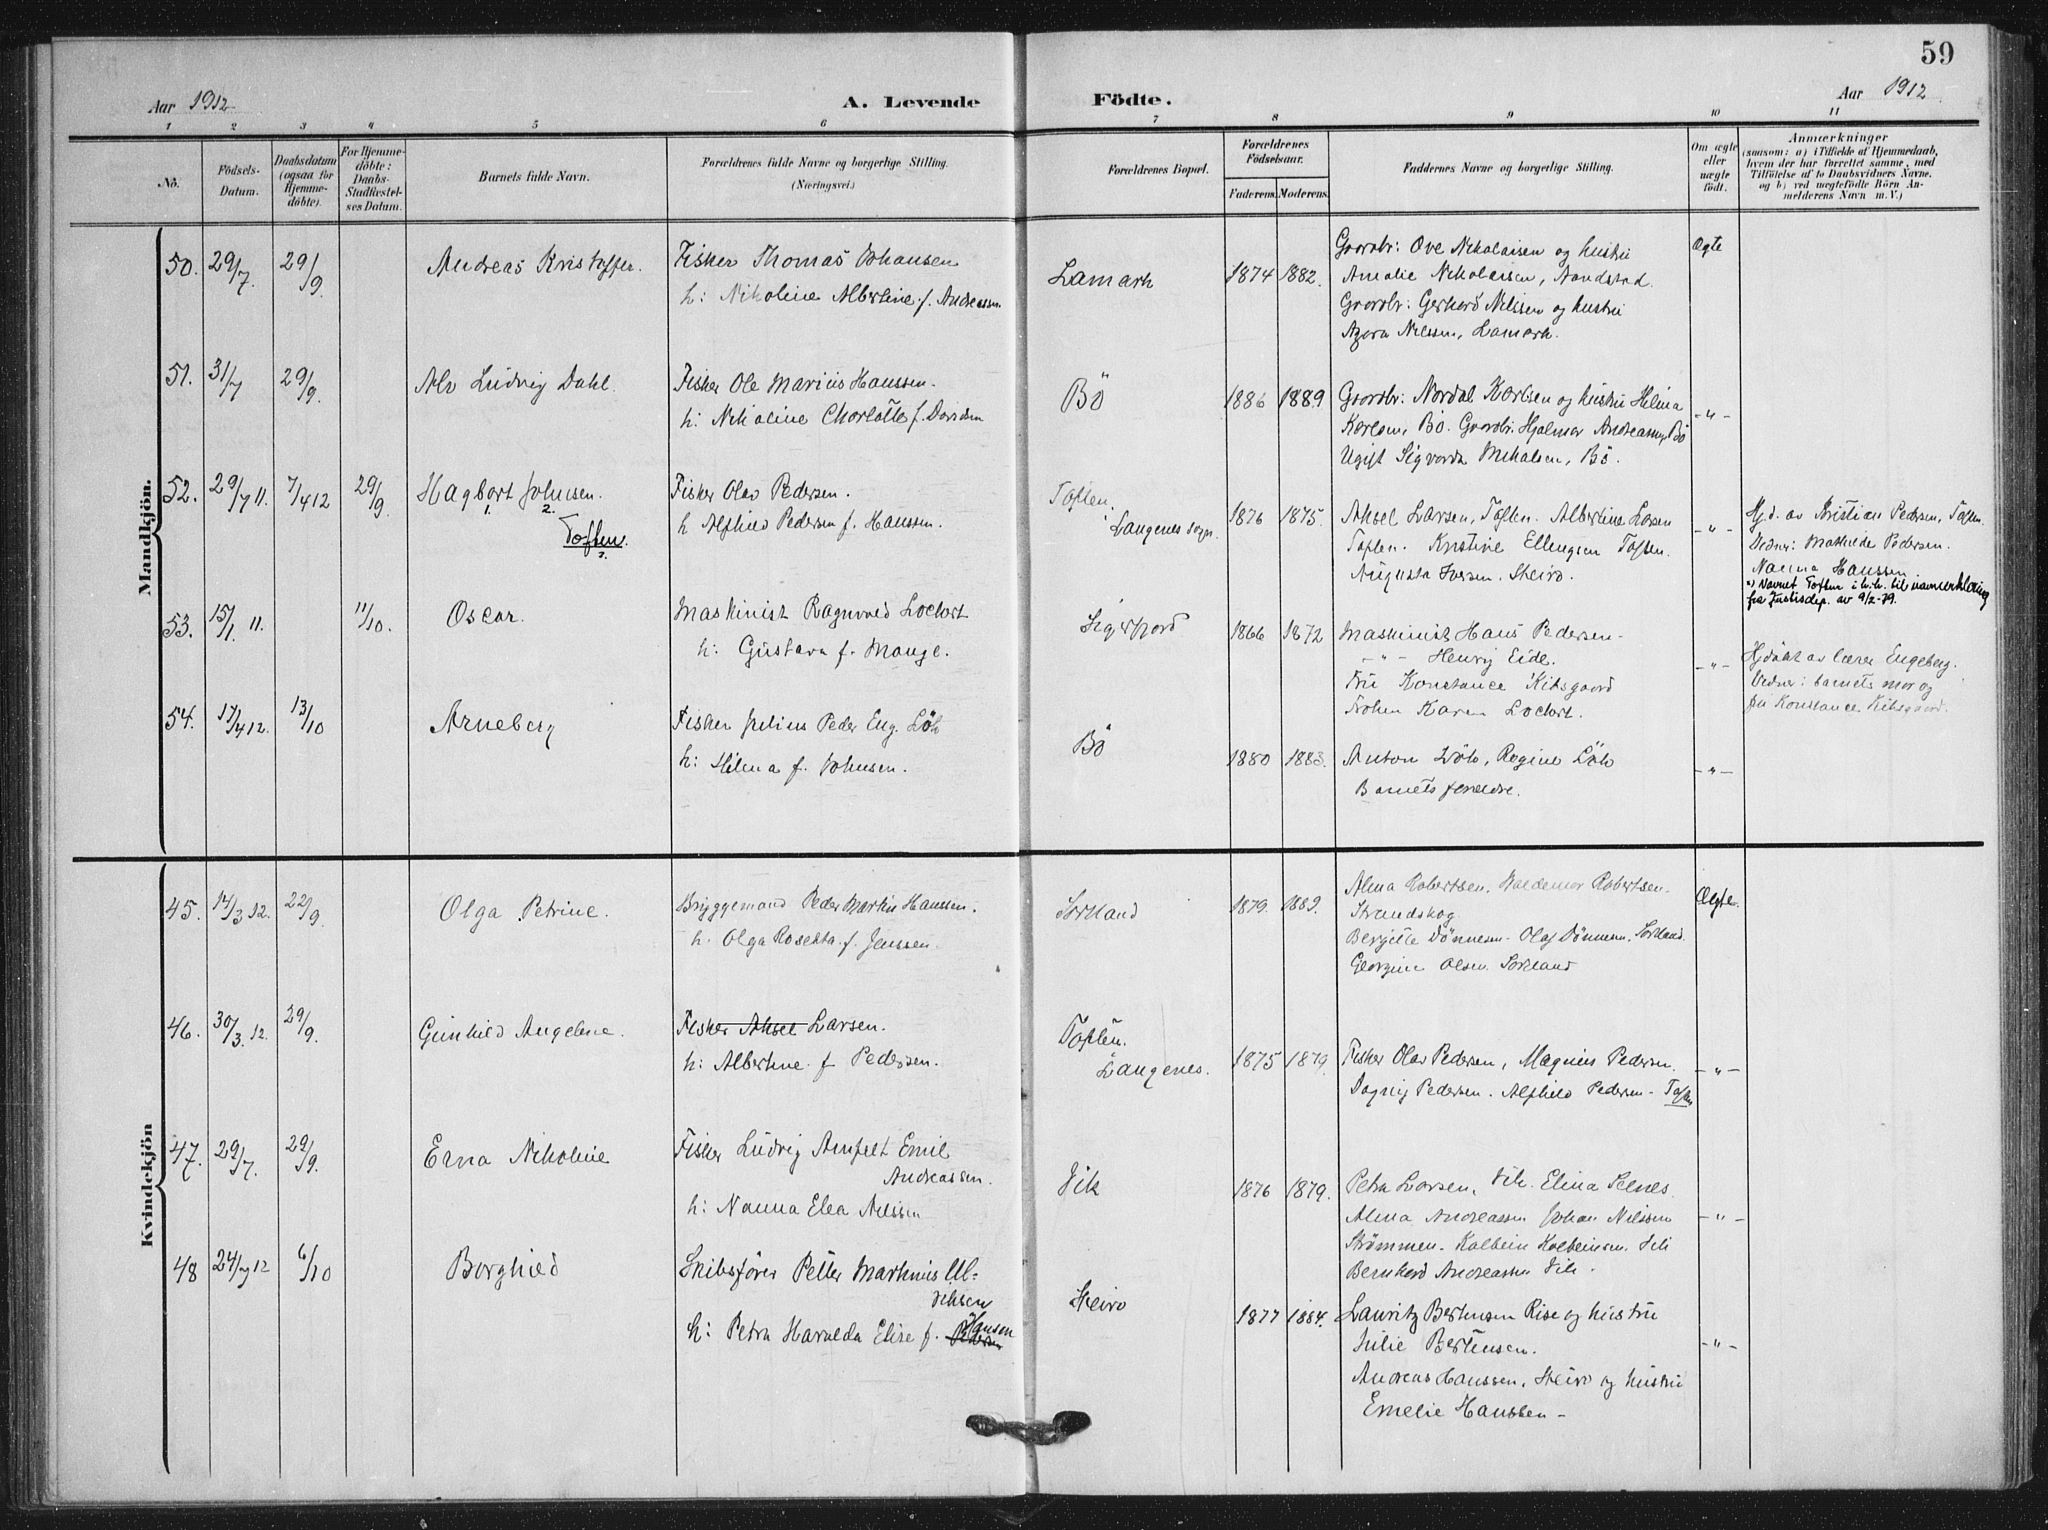 59
Aar 1912
A. Levende
Födte.
Aar 1912
1 2 3 4 5 6 7 8 9 10 11
No.
Födsels-
Datum.
Daabsdatum
(ogsaa for
Hjemme-
döbte).
For Hjemme-
döbte:
Daabs-
Stadfæstel-
ses Datum.
Barnets fulde Navn.
Forældrenes fulde Navne og borgerlige Stilling.
(Næringsvei.)
Forældrenes Bopæl.
Forældrenes
Födselsaar.
Faderens. Moderens.
Faddernes Navne og borgerlige Stilling.
Om ægte
eller
uægte
födt.
Anmærkninger
(saasom: a) i Tilfælde af Hjemmedaab,
hvem der har forrettet samme, med
Tilföielse af to Daabsvidners Navne,
og b) ved uægtefödte Börn An-
melderens Navn m. V.)
Mandkjön.
50. 29/7 29/9 Andreas Kristoffer.
Fisker Thomas Johansen
h: Nikoline Albertine f. Andreassen
Lamark
1874 1882.
Gaardbr: Ove Nikolaisen og hustru
Amalie Nikolaisen, Sandstad.
Gaardbr: Gerhard Nilssen og hustru
Azora Nilssen, Lamark.
Ægte
51. 31/7 29/9. Alv Ludvig Dahl.
Fisker Ole Marius Hanssen.
h: Nikoline Charlotte f. Davidsen
Bö
1886 1889
Gaardbr: Nordal Karlsen og hustru Hilma
Karlsen, Bö. Gaardbr. Hjalmar Andreassen, Bö
Ugift Sigvarda Mikalsen, Bö.
-"-
52. 29/7 11. 7/4 12 29/9. Hagbart Johnsen.
1. 2.
Toften.
Fisker Olav Pedersen.
h Alfhild Pedersen f. Hanssen.
Toften.
Langenes sogn.
1876 1875.
Aksel Larsen, Toften. Albertine Larsen
Toften. Kristine Ellingsen Toften.
Augusta Iversen. Skeiro.
-"-
Hjd. av Kristian Pedersen, Toften.
Vidner: Mathilde Pedersen.
Nanna Hanssen
Navnet Toften i h.h. til navneerklæring
fra Justisdep. av 9/2-79.
53. 15/1. 11. 11/10. Oscar.
Maskinist Ragnvald Lockert
h: Gustava f. Mange.
Sigerfjord
1866 1872
Maskinist Hans Pedersen-
-"- Henrij Eide.
Fru Konstance Kibsgaard
Fröken Karen Lockert.
-"-
Hjdöbt av lærer Engeberg.
Vidner: barnets mor og
fru Konstance Kibsgaard.
54. 17/4 12. 13/10 Arneberg
Fisker Julius Peder Eug. Lök
h: Hilma f. Johnsen.
Bö
1880 1883.
Anton Lök, Regine Lök
Barnets foreldre.
-"-
Kvindekjön
45. 14/3 12. 22/9. Olga Petrine.
Bryggemand Peder Martin Hanssen.
h. Olga Rosetta f. Jenssen.
Sortland
1879. 1889.
Alma Robertsen. Valdemar Robertsen.
Strandskog
Bergitte Dönnesen- Olaf Dönnesen, Sortland.
Georgine Olsen Sortland
Ægte.
46. 30/3. 12. 29/9. Gunhild Angeline.
Fisker Aksel Larsen.
h: Albertine f Pedersen.
Toften.
Langenes.
1875 1879.
Fisker Olav Pedersen, Magnus Pedersen
Dagny Pedersen. Alfhild Pedersen- Toften
-"-
47. 29/7. 29/9. Erna Nikoline
Fisker Ludvig Amfelt Emil
Andreassen.
h: Nanna Elea Nilssen
Vik
1876 1879.
Petra Larsen, Vik. Elina Selnes
Alma Andreassen Johan Nilssen
Strömmen- Kolbein Kolbeinsen. Vik
Bernhard Andreassen Vik.
-"-
48 24/7 12 6/10 Borghild
Skibsförer Petter Martinus Ul-
riksen
h: Petra Haralda Elise f. Hansen
Skeiro
1877 1884.
Lauritz Bertinsen Rise og hustru
Julie Bertinsen.
Andreas Hanssen, Skeiro og hustru
Emelie Hanssen-
-"-